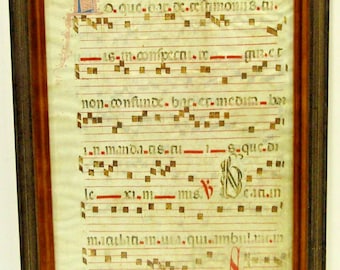 Lo que bar de testimoniis tu
is in conspectu re gum et
non confunde bar et medita bar
in mandatis tu is que di
le xi ni mis ℣ Beati in
maculati in via qui ambulant in